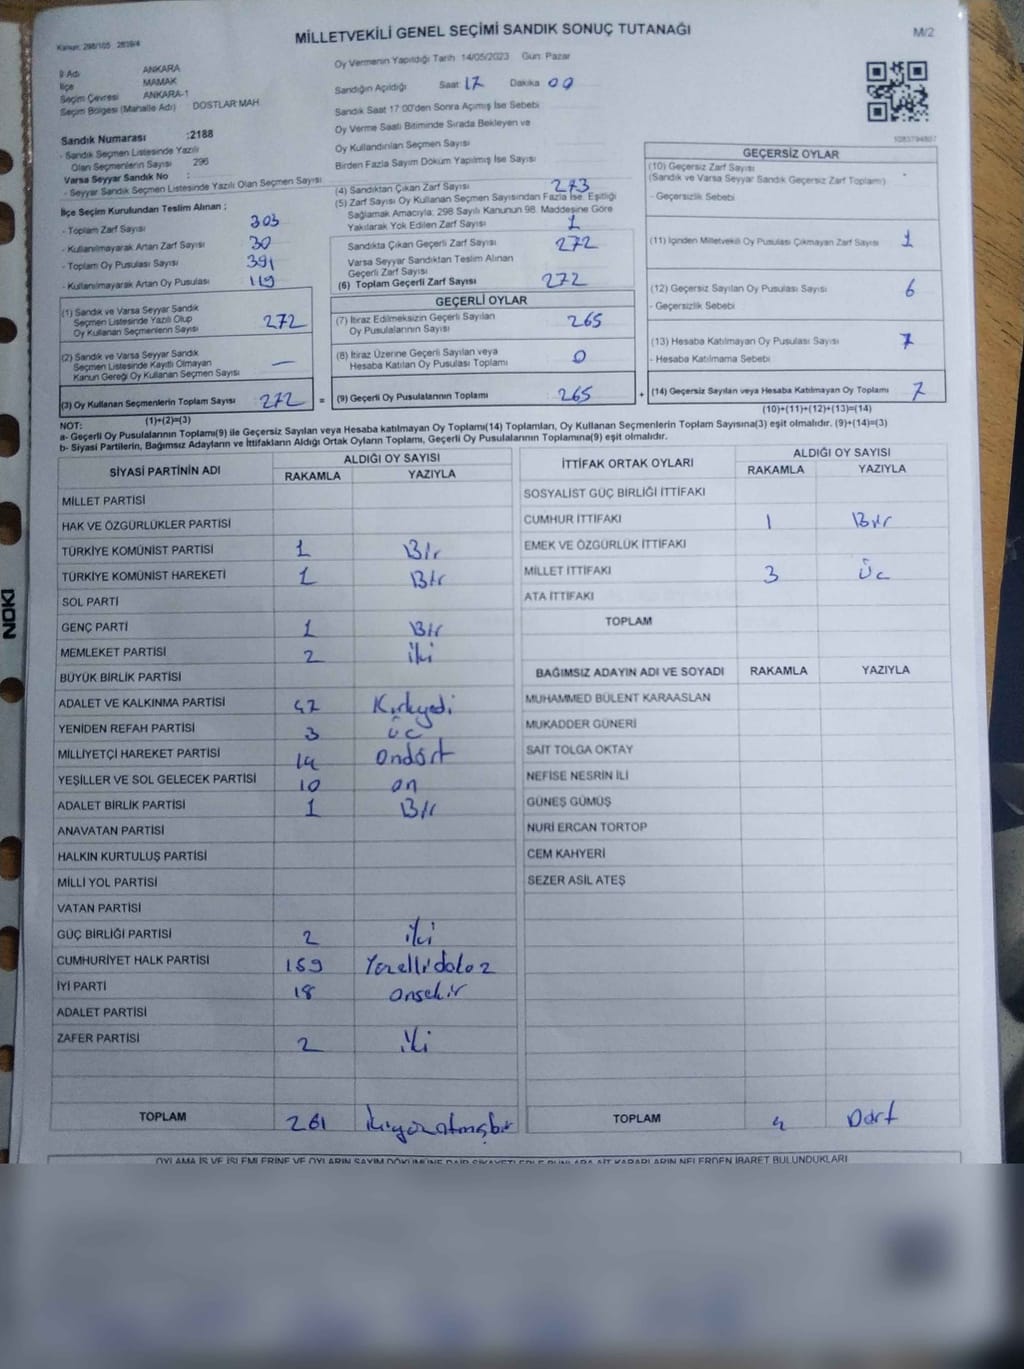 Kanun: 298/105 2839/4
MİLLETVEKİLİ GENEL SEÇİMİ SANDIK SONUÇ TUTANAĞI
M/2
İl Adı ANKARA
İlçe MAMAK
Seçim Çevresi ANKARA-1
Seçim Bölgesi (Mahalle Adı) DOSTLAR MAH.
Sandık Numarası :2188
- Sandık Seçmen Listesinde Yazılı
Olan Seçmenlerin Sayısı 296
Varsa Seyyar Sandık No :
- Seyyar Sandık Seçmen Listesinde Yazılı Olan Seçmen Sayısı
İlçe Seçim Kurulundan Teslim Alınan ;
- Toplam Zarf Sayısı 303
- Kullanılmayarak Artan Zarf Sayısı 30
- Toplam Oy Pusulası Sayısı 391
- Kullanılmayarak Artan Oy Pusulası 119
(1) Sandık ve Varsa Seyyar Sandık
Seçmen Listesinde Yazılı Olup
Oy Kullanan Seçmenlerin Sayısı 272
(2) Sandık ve Varsa Seyyar Sandık
Seçmen Listesinde Kayıtlı Olmayan
Kanun Gereği Oy Kullanan Seçmen Sayısı —
(3) Oy Kullanan Seçmenlerin Toplam Sayısı 272 =
(1)+(2)=(3)
Oy Vermenin Yapıldığı Tarih 14/05/2023 Gün: Pazar
Sandığın Açıldığı Saat 17 Dakika 00
Sandık Saat 17:00'den Sonra Açımış İse Sebebi
Oy Verme Saati Bitiminde Sırada Bekleyen ve
Oy Kullandırılan Seçmen Sayısı
Birden Fazla Sayım Döküm Yapılmış İse Sayısı
(4) Sandıktan Çıkan Zarf Sayısı 273
(5) Zarf Sayısı Oy Kullanan Seçmen Sayısından Fazla İse Eşitliği
Sağlamak Amacıyla; 298 Sayılı Kanunun 98. Maddesine Göre
Yakılarak Yok Edilen Zarf Sayısı 1
Sandıkta Çıkan Geçerli Zarf Sayısı 272
Varsa Seyyar Sandıktan Teslim Alınan
Geçerli Zarf Sayısı
(6) Toplam Geçerli Zarf Sayısı 272
GEÇERLİ OYLAR
(7) İtiraz Edilmeksizin Geçerli Sayılan
Oy Pusulalarının Sayısı 265
(8) İtiraz Üzerine Geçerli Sayılan veya
Hesaba Katılan Oy Pusulası Toplamı 0
(9) Geçerli Oy Pusulalarının Toplamı 265 +
1083794807
GEÇERSİZ OYLAR
(10) Geçersiz Zarf Sayısı
(Sandık ve Varsa Seyyar Sandık Geçersiz Zarf Toplamı)
- Geçersizlik Sebebi
(11) İçinden Milletvekili Oy Pusulası Çıkmayan Zarf Sayısı 1
(12) Geçersiz Sayılan Oy Pusulası Sayısı 6
- Geçersizlik Sebebi
(13) Hesaba Katılmayan Oy Pusulası Sayısı 7
- Hesaba Katılmama Sebebi
(14) Geçersiz Sayılan veya Hesaba Katılmayan Oy Toplamı 7
(10)+(11)+(12)+(13)=(14)
NOT:
a- Geçerli Oy Pusulalarının Toplamı(9) ile Geçersiz Sayılan veya Hesaba Katılmayan Oy Toplamı(14) Toplamları, Oy Kullanan Seçmenlerin Toplam Sayısına(3) eşit olmalıdır. (9)+(14)=(3)
b- Siyasi Partilerin, Bağımsız Adayların ve İttifakların Aldığı Ortak Oyların Toplamı, Geçerli Oy Pusulalarının Toplamına(9) eşit olmalıdır.
SİYASİ PARTİNİN ADI
ALDIĞI OY SAYISI
RAKAMLA YAZIYLA
MİLLET PARTİSİ
HAK VE ÖZGÜRLÜKLER PARTİSİ
TÜRKİYE KOMÜNİST PARTİSİ 1 Bir
TÜRKİYE KOMÜNİST HAREKETİ 1 Bir
SOL PARTİ
GENÇ PARTİ 1 Bir
MEMLEKET PARTİSİ 2 iki
BÜYÜK BİRLİK PARTİSİ
ADALET VE KALKINMA PARTİSİ 47 Kırkyedi
YENİDEN REFAH PARTİSİ 3 üc
MİLLİYETÇİ HAREKET PARTİSİ 14 ondört
YEŞİLLER VE SOL GELECEK PARTİSİ 10 on
ADALET BİRLİK PARTİSİ 1 Bir
ANAVATAN PARTİSİ
HALKIN KURTULUŞ PARTİSİ
MİLLİ YOL PARTİSİ
VATAN PARTİSİ
GÜÇ BİRLİĞİ PARTİSİ 2 iki
CUMHURİYET HALK PARTİSİ 159 Yüzellidokuz
İYİ PARTİ 18 onsekiz
ADALET PARTİSİ
ZAFER PARTİSİ 2 iki
TOPLAM 261 ikiyüzatmışbir
İTTİFAK ORTAK OYLARI
ALDIĞI OY SAYISI
RAKAMLA YAZIYLA
SOSYALİST GÜÇ BİRLİĞİ İTTİFAKI
CUMHUR İTTİFAKI 1 Bir
EMEK VE ÖZGÜRLÜK İTTİFAKI
MİLLET İTTİFAKI 3 Üc
ATA İTTİFAKI
TOPLAM
BAĞIMSIZ ADAYIN ADI VE SOYADI RAKAMLA YAZIYLA
MUHAMMED BÜLENT KARAASLAN
MUKADDER GÜNERİ
SAİT TOLGA OKTAY
NEFİSE NESRİN İLİ
GÜNEŞ GÜMÜŞ
NURİ ERCAN TORTOP
CEM KAHYERİ
SEZER ASİL ATEŞ
TOPLAM 4 Dört
OYLAMA İŞ VE İŞLEMLERİNE VE OYLARIN SAYIM DÖKÜMÜNE DAİR ŞİKAYETLERLE BUNLARA AİT KARARLARIN NELERDEN İBARET BULUNDUKLARI
NOKI